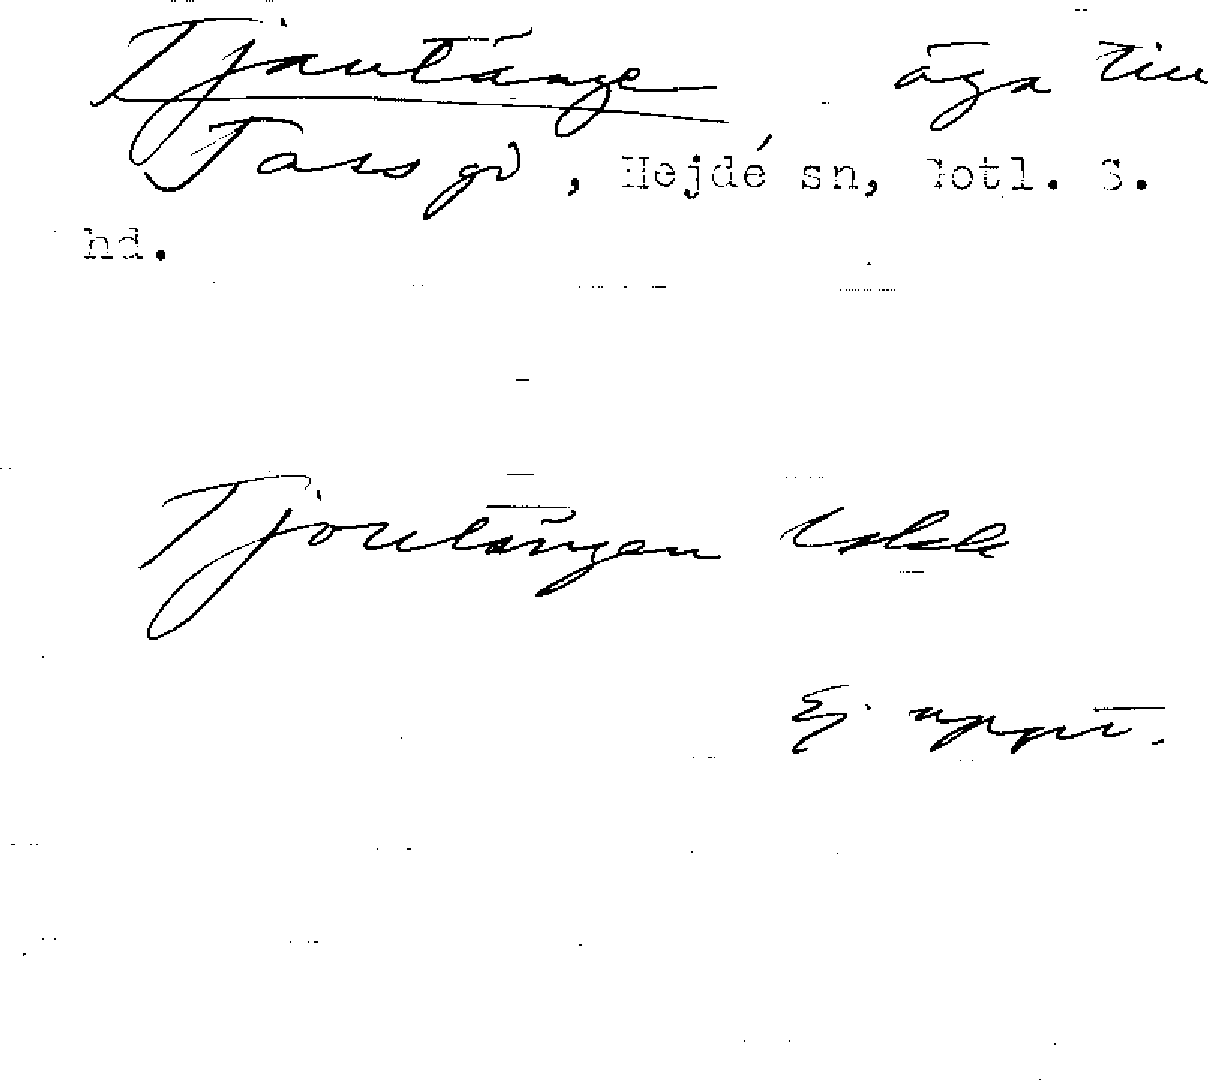 Tjautänge äga till
Tass gd, Hejde sn, Gotl. S.
hd.
Tjoutängen Ekk
Ej uppt.